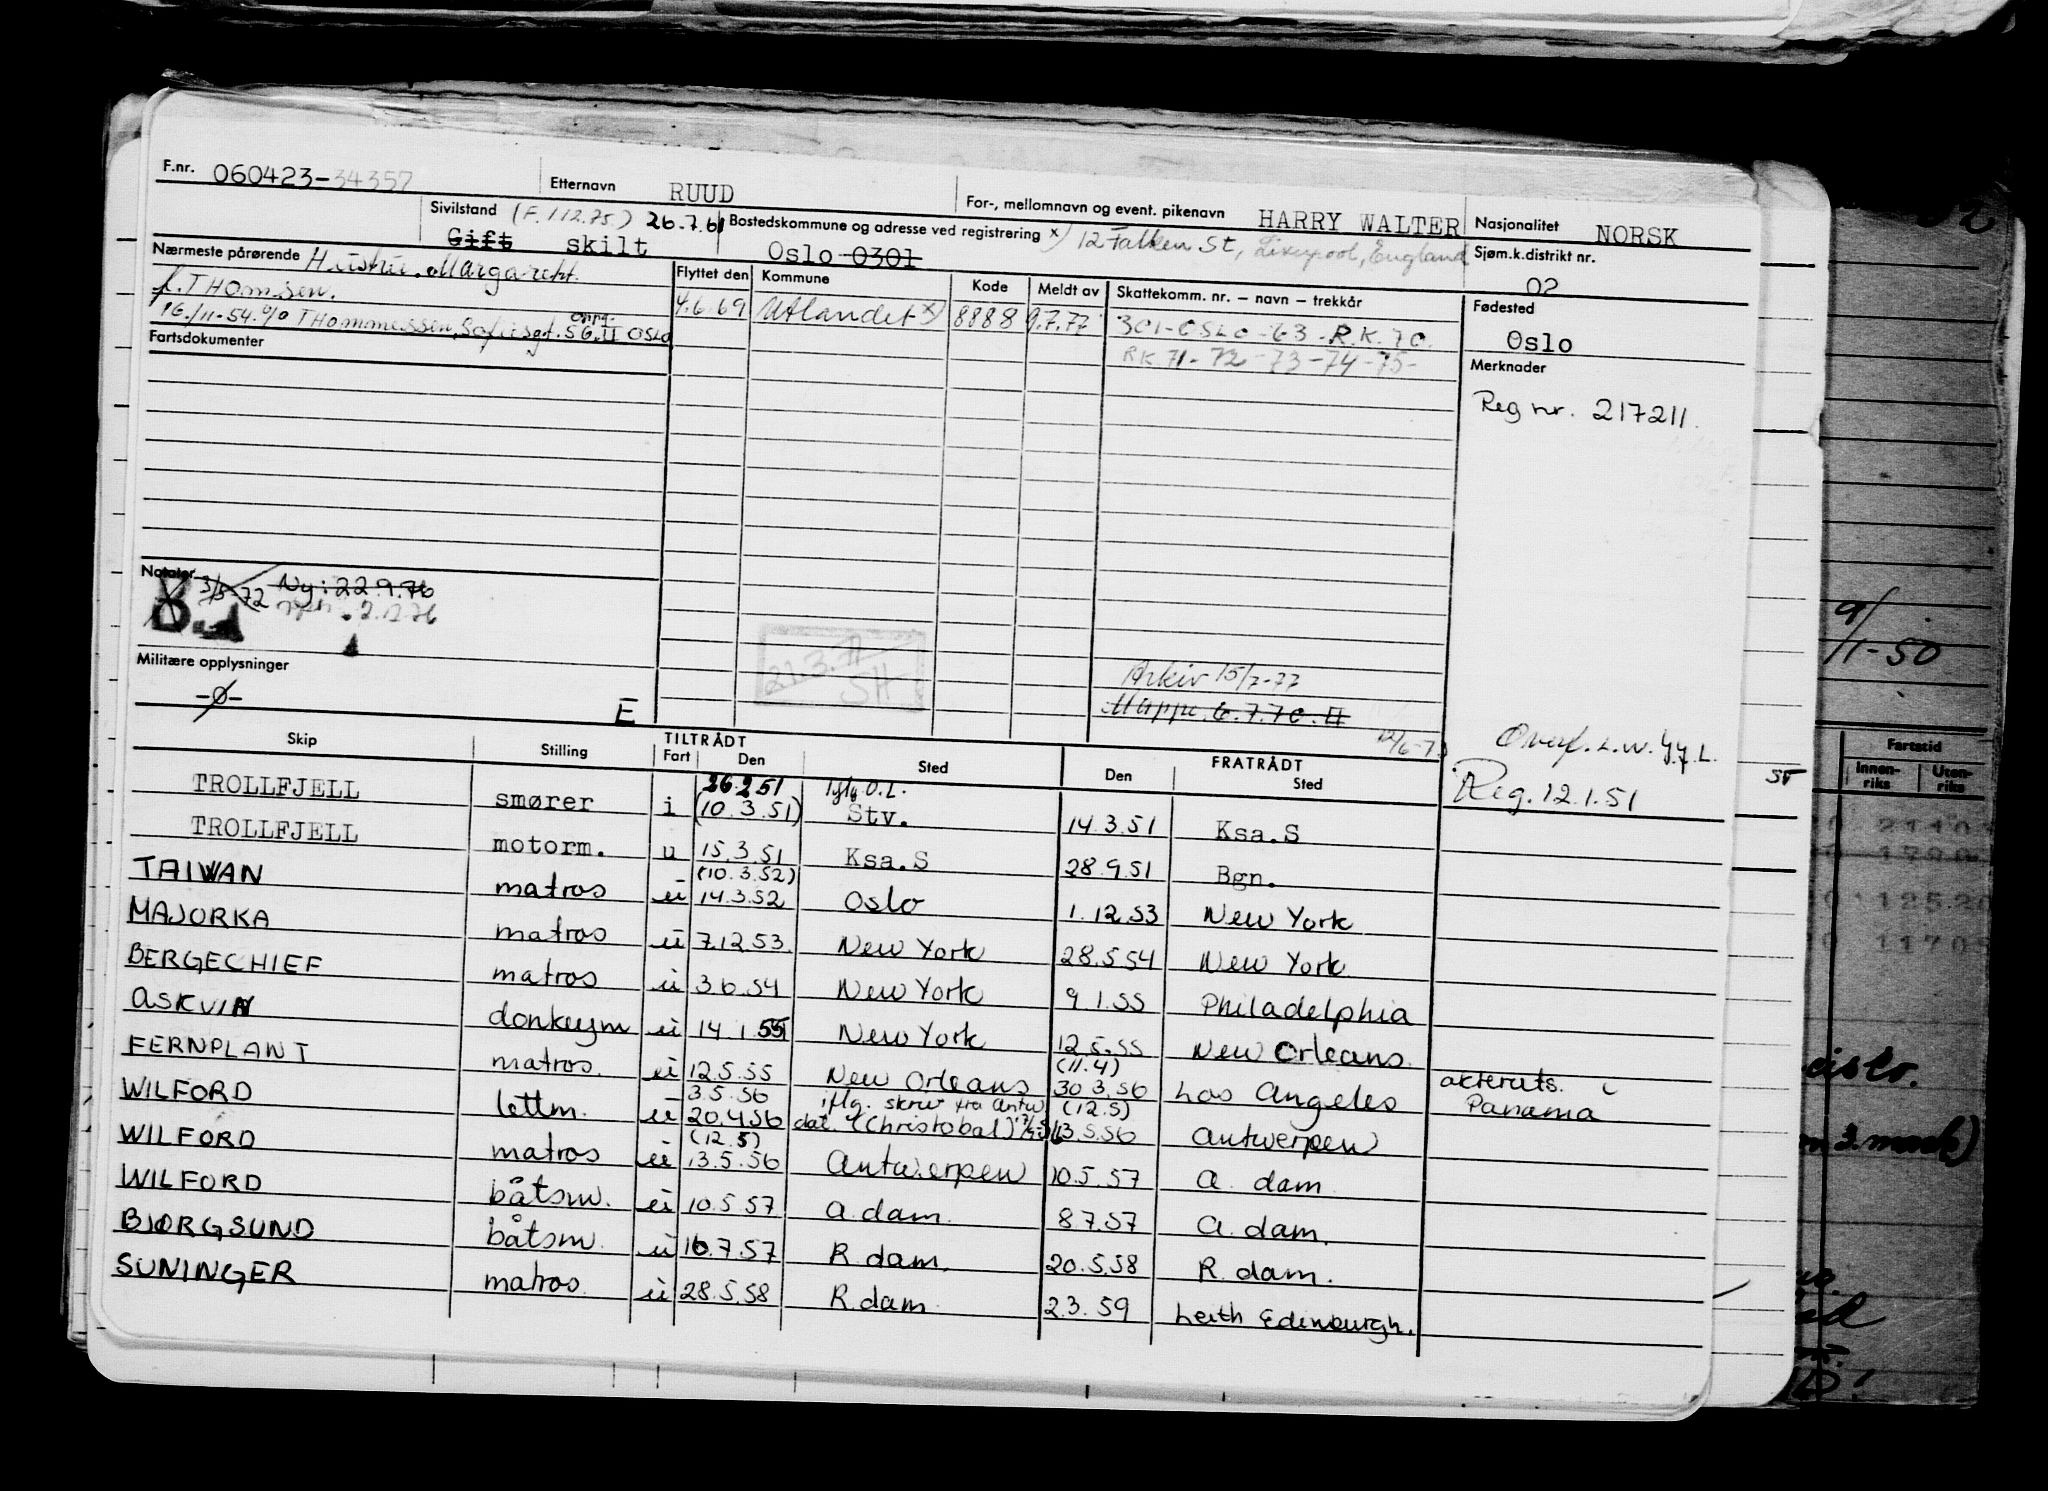 F.nr. 060423-34357 Etternavn RUUD For-, mellomnavn og event. pikenavn HARRY WALTER Nasjonalitet NORSK
Sivilstand (F.112.75) 26.7.61 Gift skilt Bostedskommune og adresse ved registrering x) 12 Falken St, Liverpool, England
Oslo 0301
Sjøm.k.distrikt nr. 02
Nærmeste pårørende Hustru Margareth
f. THOMSEN.
16/11-54. c/o THommessen, Sofiesgt. 56, II oppg. OSLO
Flyttet den Kommune Kode Meldt av Skattekomm. nr. – navn – trekkår
4.6.69 Utlandet x) 8888 9.7.77 301-OSLO-63-R.K.70.
RK 71-72-73-74-75-
Fødested
Oslo
Merknader
Reg nr. 217211.
Fartsdokumenter
Notater 3/3-72 Ny: 22.9.76
2.12.76
21.3.77
SH
Militære opplysninger
-0-
E
Arkiv 15/7-77
Mappe 6.7.70. II
12/6-73
Overf. L.W.
Reg. 12.1.51
Skip Stilling TILTRÅDT Fart Den Sted FRATRÅDT Den Sted
TROLLFJELL smører i 26.2.51 (10.3.51) iflg O.L. Stv. 14.3.51 Ksa.S
TROLLFJELL motorm. u 15.3.51 Ksa.S 28.9.51 Bgn.
TAIWAN matros u (10.3.52) 14.3.52 Oslo 1.12.53 New York
MAJORKA matros u 7.12.53. New York 28.5.54 New York
BERGECHIEF matros u 3.6.54 New York 9.1.55 Philadelphia
ASKVIN donkeym u 14.1.55 New York 12.5.55 New Orleans.
FERNPLANT matros. u 12.5.55 New Orleans (11.4) 30.3.56 Los Angeles akterut s. i Panama
WILFORD lettm. u 3.5.56 20.4.56 iflg. skriv fra antw dat. (Christobal) (12.5) 13.5.56 Antwerpen
WILFORD matros u (12.5) 13.5.56 Antwerpen 10.5.57 A. dam
WILFORD båtsm. u 10.5.57 A. dam. 8.7.57 A. dam.
BJØRGSUND båtsm. u 16.7.57 R. dam. 20.5.58 R. dam.
SUNINGER matros. u 28.5.58 R. dam. 2.3.59 Leith Edinburgh.
9/1-50
Fartstid
Innen-riks Uten-riks